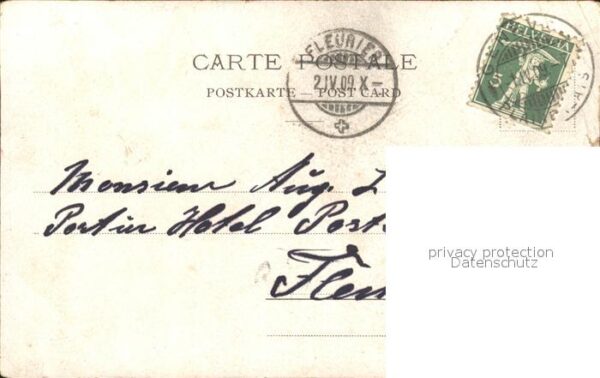 CARTE POSTALE
POSTKARTE — POST CARD
FLEURIER
2.IV.09.X–
HELVETIA
5
Monsieur Aug. L
Portier Hotel Post
Fleu
privacy protection
Datenschutz